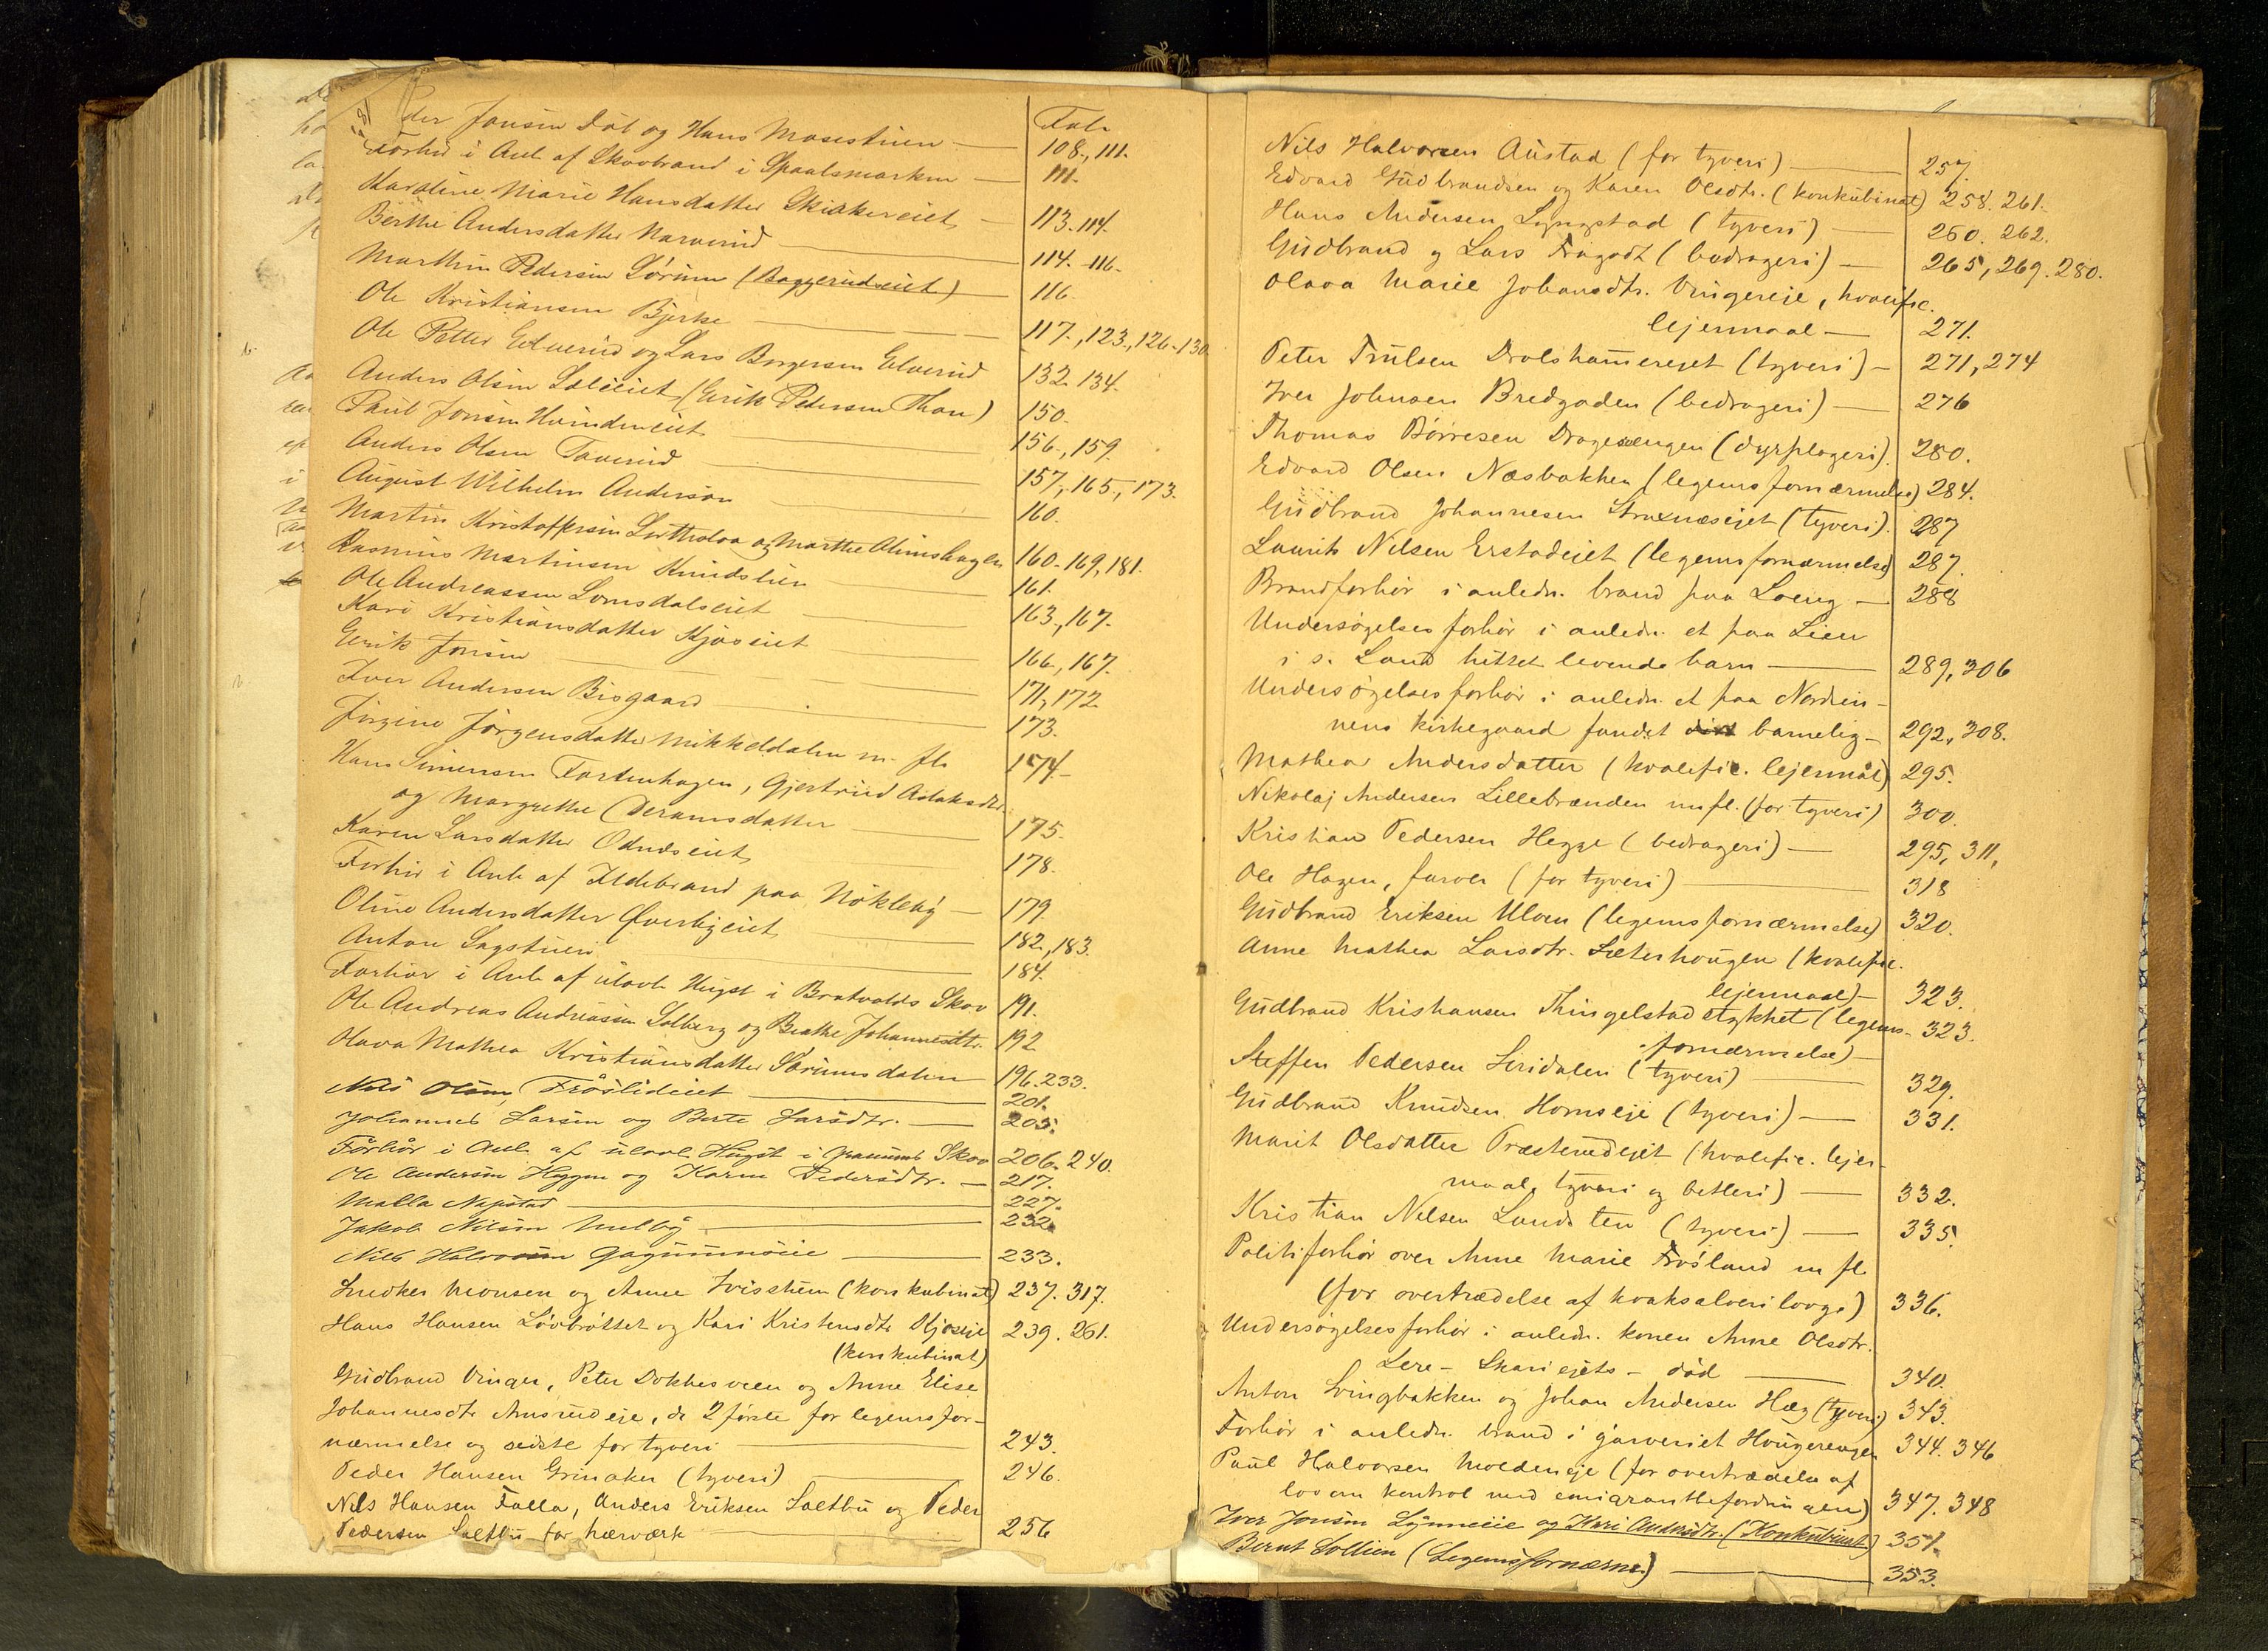 Fol.
Peder Jonsen Døl og Hans Mosestuen — 108., 111.
Forhør i Anl. af Skovbrand i Spaalsmarken — 111.
Karoline Marie Hansdatter Skiakereiet — 113. 114.
Berthe Andersdatter Narverud — 114. 116.
Marthin Pedersen Sørum (Baggerudeiet) 116.
Ole Kristiansen Bjerke — 117., 123., 126. 130.
Ole Petter Elverud og Lars Borgersen Elverud 132. 134.
Anders Olsen Sæleiet (Erik Pedersen Thon) 150.
Paul Jonsen Hvindeneiet 156., 159.
Anders Olsen Taverud — 157., 165., 173.
August Wilhelm Anderson 160.
Martin Kristoffersen og Marthe 160. 169, 181.
Rasmus Martinsen Knudslien 161.
Ole Andreassen Lomsdalseiet 163., 167.
Kari Kristiansdatter Kjøseiet 166., 167.
Erik Jonsen — 171, 172.
Iver Andersen Bisgaard 173.
Jörgine Jörgensdatter Mikkeldalen m. fl. 174.
Hans Simensen Fastenhagen, Gjertrud Aslaksdtr.
og Margrethe — 175.
Karen Larsdatter Odnæseiet 178.
Forhør i Anl. af Ildebrand paa Nökleby — 179.
Oline Andersdatter Øverbyeiet 182., 183.
Anton Sagstuen 184.
Forhør i Anl. af ulovl. Hugst i Bratvolds Skov 191.
Ole Andreas Andreassen Solberg og Beathe Johannesdtr. 192
Olava Mathea Kristiansdatter Sørumsdalen 196. 233.
Nils Olsen Frøslideiet — 201.
Johannes Larsen og Berte Larsdtr. — 205.
Forhør i Anl. af ulovl. Hugst i Granums Skov 206. 240.
Ole Andersen Heggen og Karen Pedersdtr. — 217.
Malla Napstad — 227.
Jakob Nilsen Mulby — 232.
Nils Halvorsen Gagnumseie — 233.
Snedker Monsen og Anne (konkubinat) 237. 317.
Hans Hansen Lövbråttet og Kari Kristensdtr. 239. 261.
(konkubinat)
Gudbrand Vinger, Peter Dokkesveen og Anne Elise
Johannesdtr. Amsrudeje, de 2 første for legemsfor-
nærmelse og sidste for tyveri — 243.
Peder Hansen Grinaker (tyveri) — 246.
Nils Hansen Falla, Anders Eriksen Saltbu og Peder
Pedersen Saltbu for hærværk — 256
Nils Halvorsen Austad (for tyveri) — 257.
Edvard Gudbrandsen og Karen Olsdtr. (konkubinat) 258. 261.
Hans Andersen Lyngstad (tyveri) — 260. 262.
Gudbrand og Lars Fragodt (bedrageri) — 265, 269. 280.
Olava Marie Johansdtr. Vingereje, kvalific.
lejermaal — 271.
Peter Trulsen Drolshammerejet (tyveri) — 271, 274
Iver Johnsen Bredgaden (bedrageri) — 276
Thomas Börresen Dragesængen (dyrplageri). 280.
Edvard Olsen Næsbakken (legemsfornærmelse) 284.
Gudbrand Johannesen Straxnæsejet (tyveri). 287
Laurits Nilsen Erstadejet (legemsfornærmelse) 287.
Brandforhör i anledn. brand paa Loeng — 288
Undersøgelsesforhör i anledn. et paa Lien
i s. Land hittet levende barn — 289, 306
Undersøgelsesforhör i anledn. et paa Nordsin-
nens kirkegaard fundet barnelig — 292, 308.
Mathea Andersdatter (kvalific. lejermål) 295.
Nikolaj Andersen Lillebrænden m fl. (for tyveri) 300.
Kristian Pedersen Hegge (bedrageri) — 295, 311,
Ole Hagen, farver (for tyveri) — 318
Gudbrand Eriksen Uloen (legemsfornærmelse) 320.
Anne Mathea Larsdtr. Sæterhougen (kvalific.
lejermaal) — 323.
Gudbrand Kristiansen Thingelstadstykket (legems- 323.
fornærmelse) —
Steffen Pedersen Liridalen (tyveri) — 329.
Gudbrand Knudsen Hornseje (tyveri) — 331.
Marit Olsdatter Præsterudejet (kvalific. lejer-
maal, tyveri og betleri) — 332.
Kristian Nilsen Landsten (tyveri) — 335.
Politiforhör over Anne Marie Frösland m fl.
(for overtrædelse af kvaksalveriloven) 336.
Undersøgelsesforhör i anledn. konen Anne Olsdtr.
Lere - Skariejets - död — 340.
Anton Svingbakken og Johan Andersen Hæg (tyveri) 343.
Forhör i anledn. brand i garveriet Hougerengen 344. 346
Paul Halvorsen Moldeneje (for overtrædelse af
lov om kontrol med emigrantbefordringen) 347. 348
Iver Jonsen Lynneeie og Kari Andersdtr. (Konkubinat) 351.
Bernt Sollien (Legemsfornærm.) — 353.